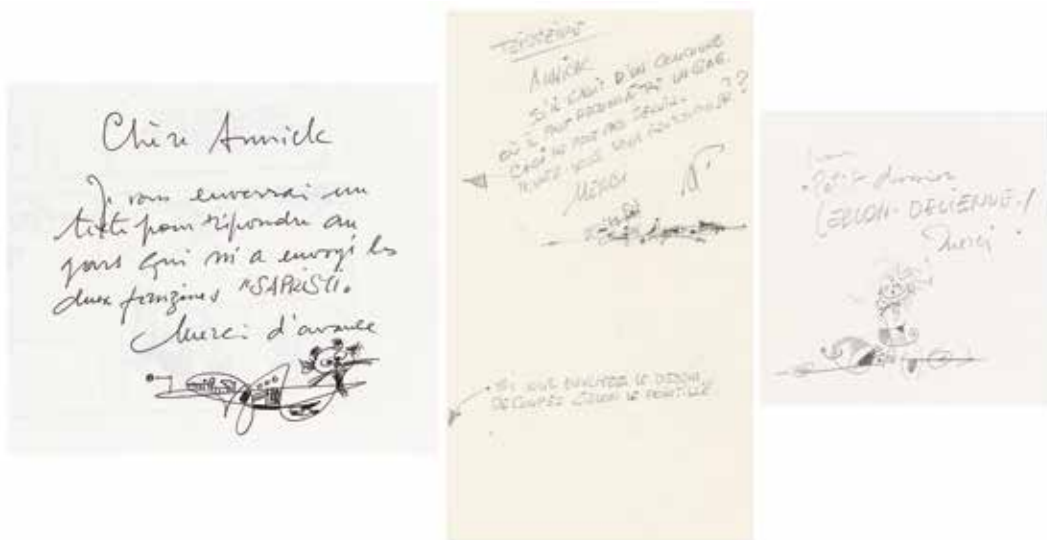 Chère Annick
Je vous enverrai un
texte pour répondre au
gars qui m'a envoyé les
deux fanzines "SAPRISTI".
Merci d'avance
ANNICK
S'IL S'AGIT D'UN CONCOURS
OÙ IL FAUT
CELA NE PEUT PAS SERVIR.
POUVEZ-VOUS VOUS RENSEIGNER ??
MERCI
SI VOUS ENVOYEZ LE DESSIN
DÉCOUPEZ SELON LE POINTILLÉ.
Petit dessin
LELOH-DELIENNE!
Merci